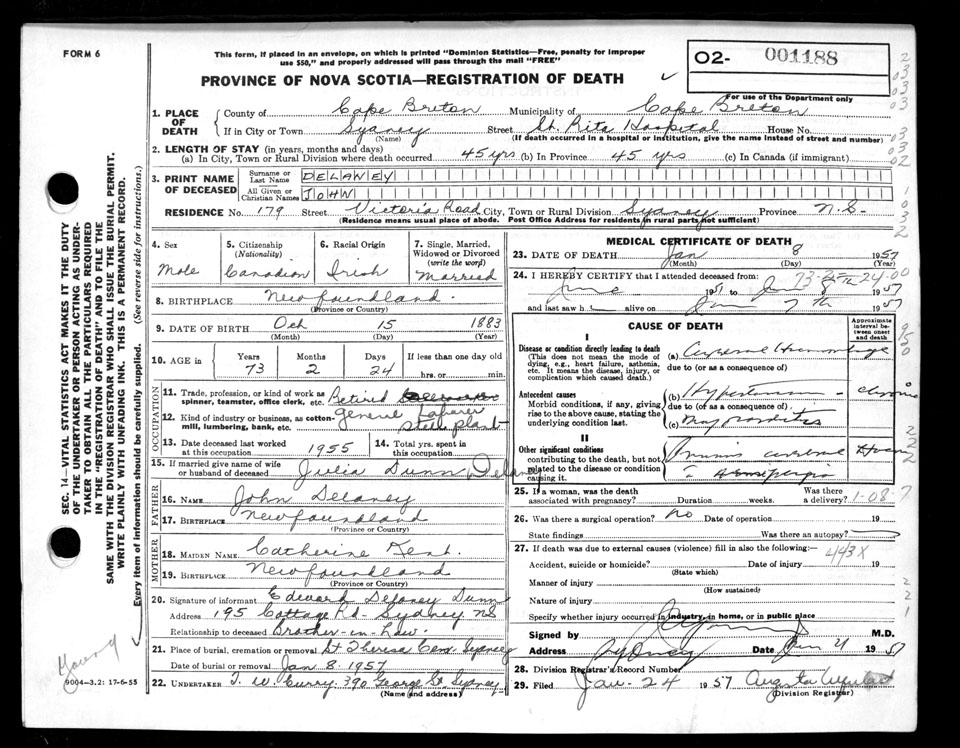 FORM 6
This form, if placed in an envelope, on which is printed "Dominion Statistics—Free, penalty for improper
use $50," and properly addressed will pass through the mail "FREE"
PROVINCE OF NOVA SCOTIA—REGISTRATION OF DEATH
02- 001188
For use of the Department only
SEC. 14—VITAL STATISTICS ACT MAKES IT THE DUTY
OF THE UNDERTAKER OR PERSON ACTING AS UNDER-
TAKER TO OBTAIN ALL THE PARTICULARS REQUIRED
IN THE "REGISTRATION OF DEATH" AND TO FILE THE
SAME WITH THE DIVISION REGISTRAR WHO SHALL ISSUE THE BURIAL PERMIT.
WRITE PLAINLY WITH UNFADING INK. THIS IS A PERMANENT RECORD.
Every item of information should be carefully supplied. (See reverse side for instructions.)
1. PLACE OF DEATH
County of Cape Breton Municipality of Cape Breton
If in City or Town Sydney Street St. Rita Hospital House No.
(Name) (If death occurred in a hospital or institution, give the name instead of street and number)
2. LENGTH OF STAY (in years, months and days)
(a) In City, Town or Rural Division where death occurred 45 yrs (b) In Province 45 yrs (c) In Canada (if immigrant)
3. PRINT NAME OF DECEASED
Surname or Last Name DELANEY
All Given or Christian Names JOHN
RESIDENCE No. 179 Street Victoria Road City, Town or Rural Division Sydney Province N.S.
(Residence means usual place of abode. Post Office Address for residents in rural parts not sufficient)
4. Sex
Male
5. Citizenship
(Nationality)
Canadian
6. Racial Origin
Irish
7. Single, Married,
Widowed or Divorced
(write the word)
Married
8. BIRTHPLACE Newfoundland.
(Province or Country)
9. DATE OF BIRTH Oct 15 1883
(Month) (Day) (Year)
10. AGE in
Years Months Days If less than one day old
73 2 24 hrs. or min.
OCCUPATION
11. Trade, profession, or kind of work as
spinner, teamster, office clerk, etc. Retired
12. Kind of industry or business, as cotton-
mill, lumbering, bank, etc. general laborer
steel plant
13. Date deceased last worked
at this occupation 1955
14. Total yrs. spent in
this occupation
15. If married give name of wife
or husband of deceased Julia Dunn Delaney
FATHER
16. NAME John Delaney
17. BIRTHPLACE Newfoundland
(Province or Country)
MOTHER
18. MAIDEN NAME Catherine Kent.
19. BIRTHPLACE Newfoundland
(Province or Country)
20. Signature of informant Edward Delaney Dunn
Address 195 Cottage Rd. Sydney NS
Relationship to deceased Brother-in-Law.
21. Place of burial, cremation or removal St Theresa Cem. Sydney
Date of burial or removal Jan 8. 1957
22. UNDERTAKER T. W. Curry. 390 George St. Sydney
(Name and address)
Young
9004-3.2: 17-6-55
MEDICAL CERTIFICATE OF DEATH
23. DATE OF DEATH Jan 8 1957
(Month) (Day) (Year)
24. I HEREBY CERTIFY that I attended deceased from:
June 1951 to 1957
and last saw h alive on Jan 7 Th 1957
CAUSE OF DEATH
Approximate
interval be-
tween onset
and death
I
Disease or condition directly leading to death
(This does not mean the mode of
dying, e.g., heart failure, asthenia,
etc. It means the disease, injury, or
complication which caused death.
(a)
due to (or as a consequence of)
Antecedent causes
Morbid conditions, if any, giving
rise to the above cause, stating the
underlying condition last.
(b) Hypertension chronic
due to (or as a consequence of)
(c) Myocarditis
II
Other significant conditions
contributing to the death, but not
related to the disease or condition
causing it.
25. If a woman, was the death
associated with pregnancy? Duration weeks. Was there
a delivery? 1-08-7
26. Was there a surgical operation? No Date of operation 19
State findings Was there an autopsy?
27. If death was due to external causes (violence) fill in also the following:— 443X
Accident, suicide or homicide? Date of injury 19
(State which)
Manner of injury
(How sustained)
Nature of injury
Specify whether injury occurred in industry, in home, or in public place
Signed by M.D.
Address Sydney Date 1957
28. Division Registrar's Record Number
29. Filed Jan-24 1957
(Division Registrar)